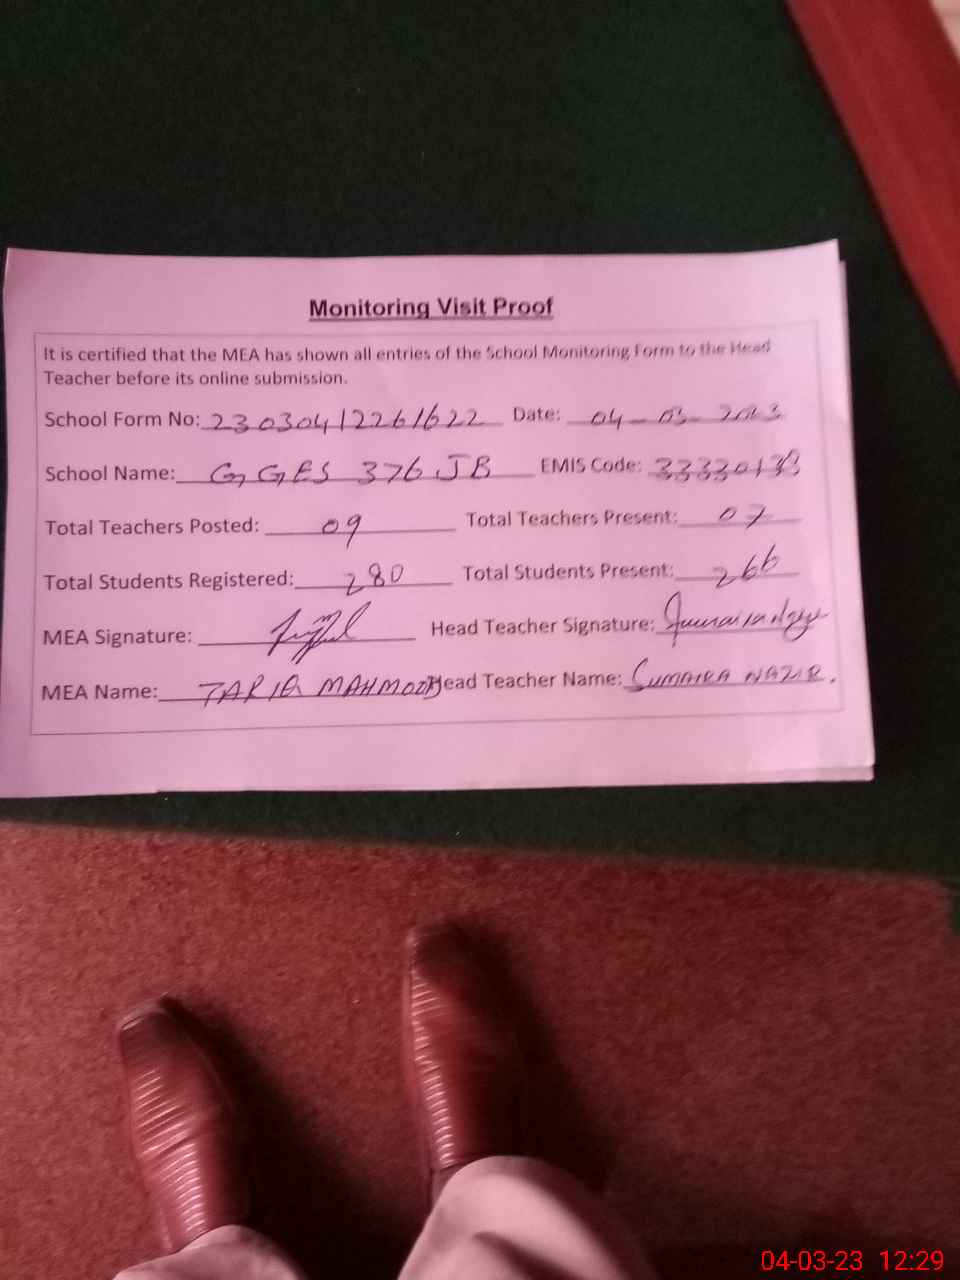 Monitoring Visit Proof
It is certified that the MEA has shown all entries of the School Monitoring Form to the Head
Teacher before its online submission.
School Form No: 23030412261622 Date: 04-03-2023
School Name: GGES 376 JB EMIS Code: 33330133
Total Teachers Posted: 09 Total Teachers Present: 07
Total Students Registered: 280 Total Students Present: 266
MEA Signature: Head Teacher Signature:
MEA Name: TARIQ MAHMOOD Head Teacher Name: SUMAIRA NAZIR.
04-03-23 12:29